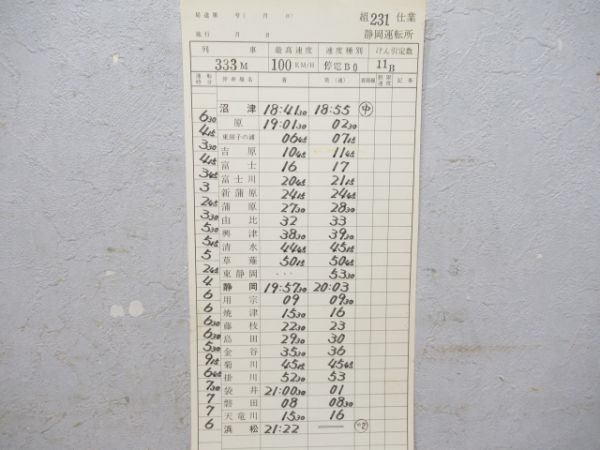 局達第 号( 月 日) 組231仕業
施行 月 日 静岡運転所
列車 最高速度 速度種別 けん引定数
333M 100KM/H 停電B0 11B
運転時分 停車場名 着 発(通) 着発線 制限速度 記事
沼津 18:41 30 18:55 中
6 30 原 19:01 30 02 30
4 15 東田子の浦 06 45 07 15
3 30 吉原 10 45 11 45
4 15 富士 16 17
3 45 富士川 20 45 21 15
3 新蒲原 24 15 24 45
2 45 蒲原 27 30 28 30
3 30 由比 32 33
5 30 興津 38 30 39 30
5 15 清水 44 45 45 15
5 草薙 50 15 50 45
2 45 東静岡 ... 53 30
4 静岡 19:57 30 20:03
6 用宗 09 09 30
6 焼津 15 30 16
6 30 藤枝 22 30 23
6 30 島田 29 30 30
5 30 金谷 35 30 36
9 15 菊川 45 15 45 45
6 45 掛川 52 30 53
7 30 袋井 21:00 30 01
7 磐田 08 08 30
7 天竜川 15 30 16
6 浜松 21:22 —